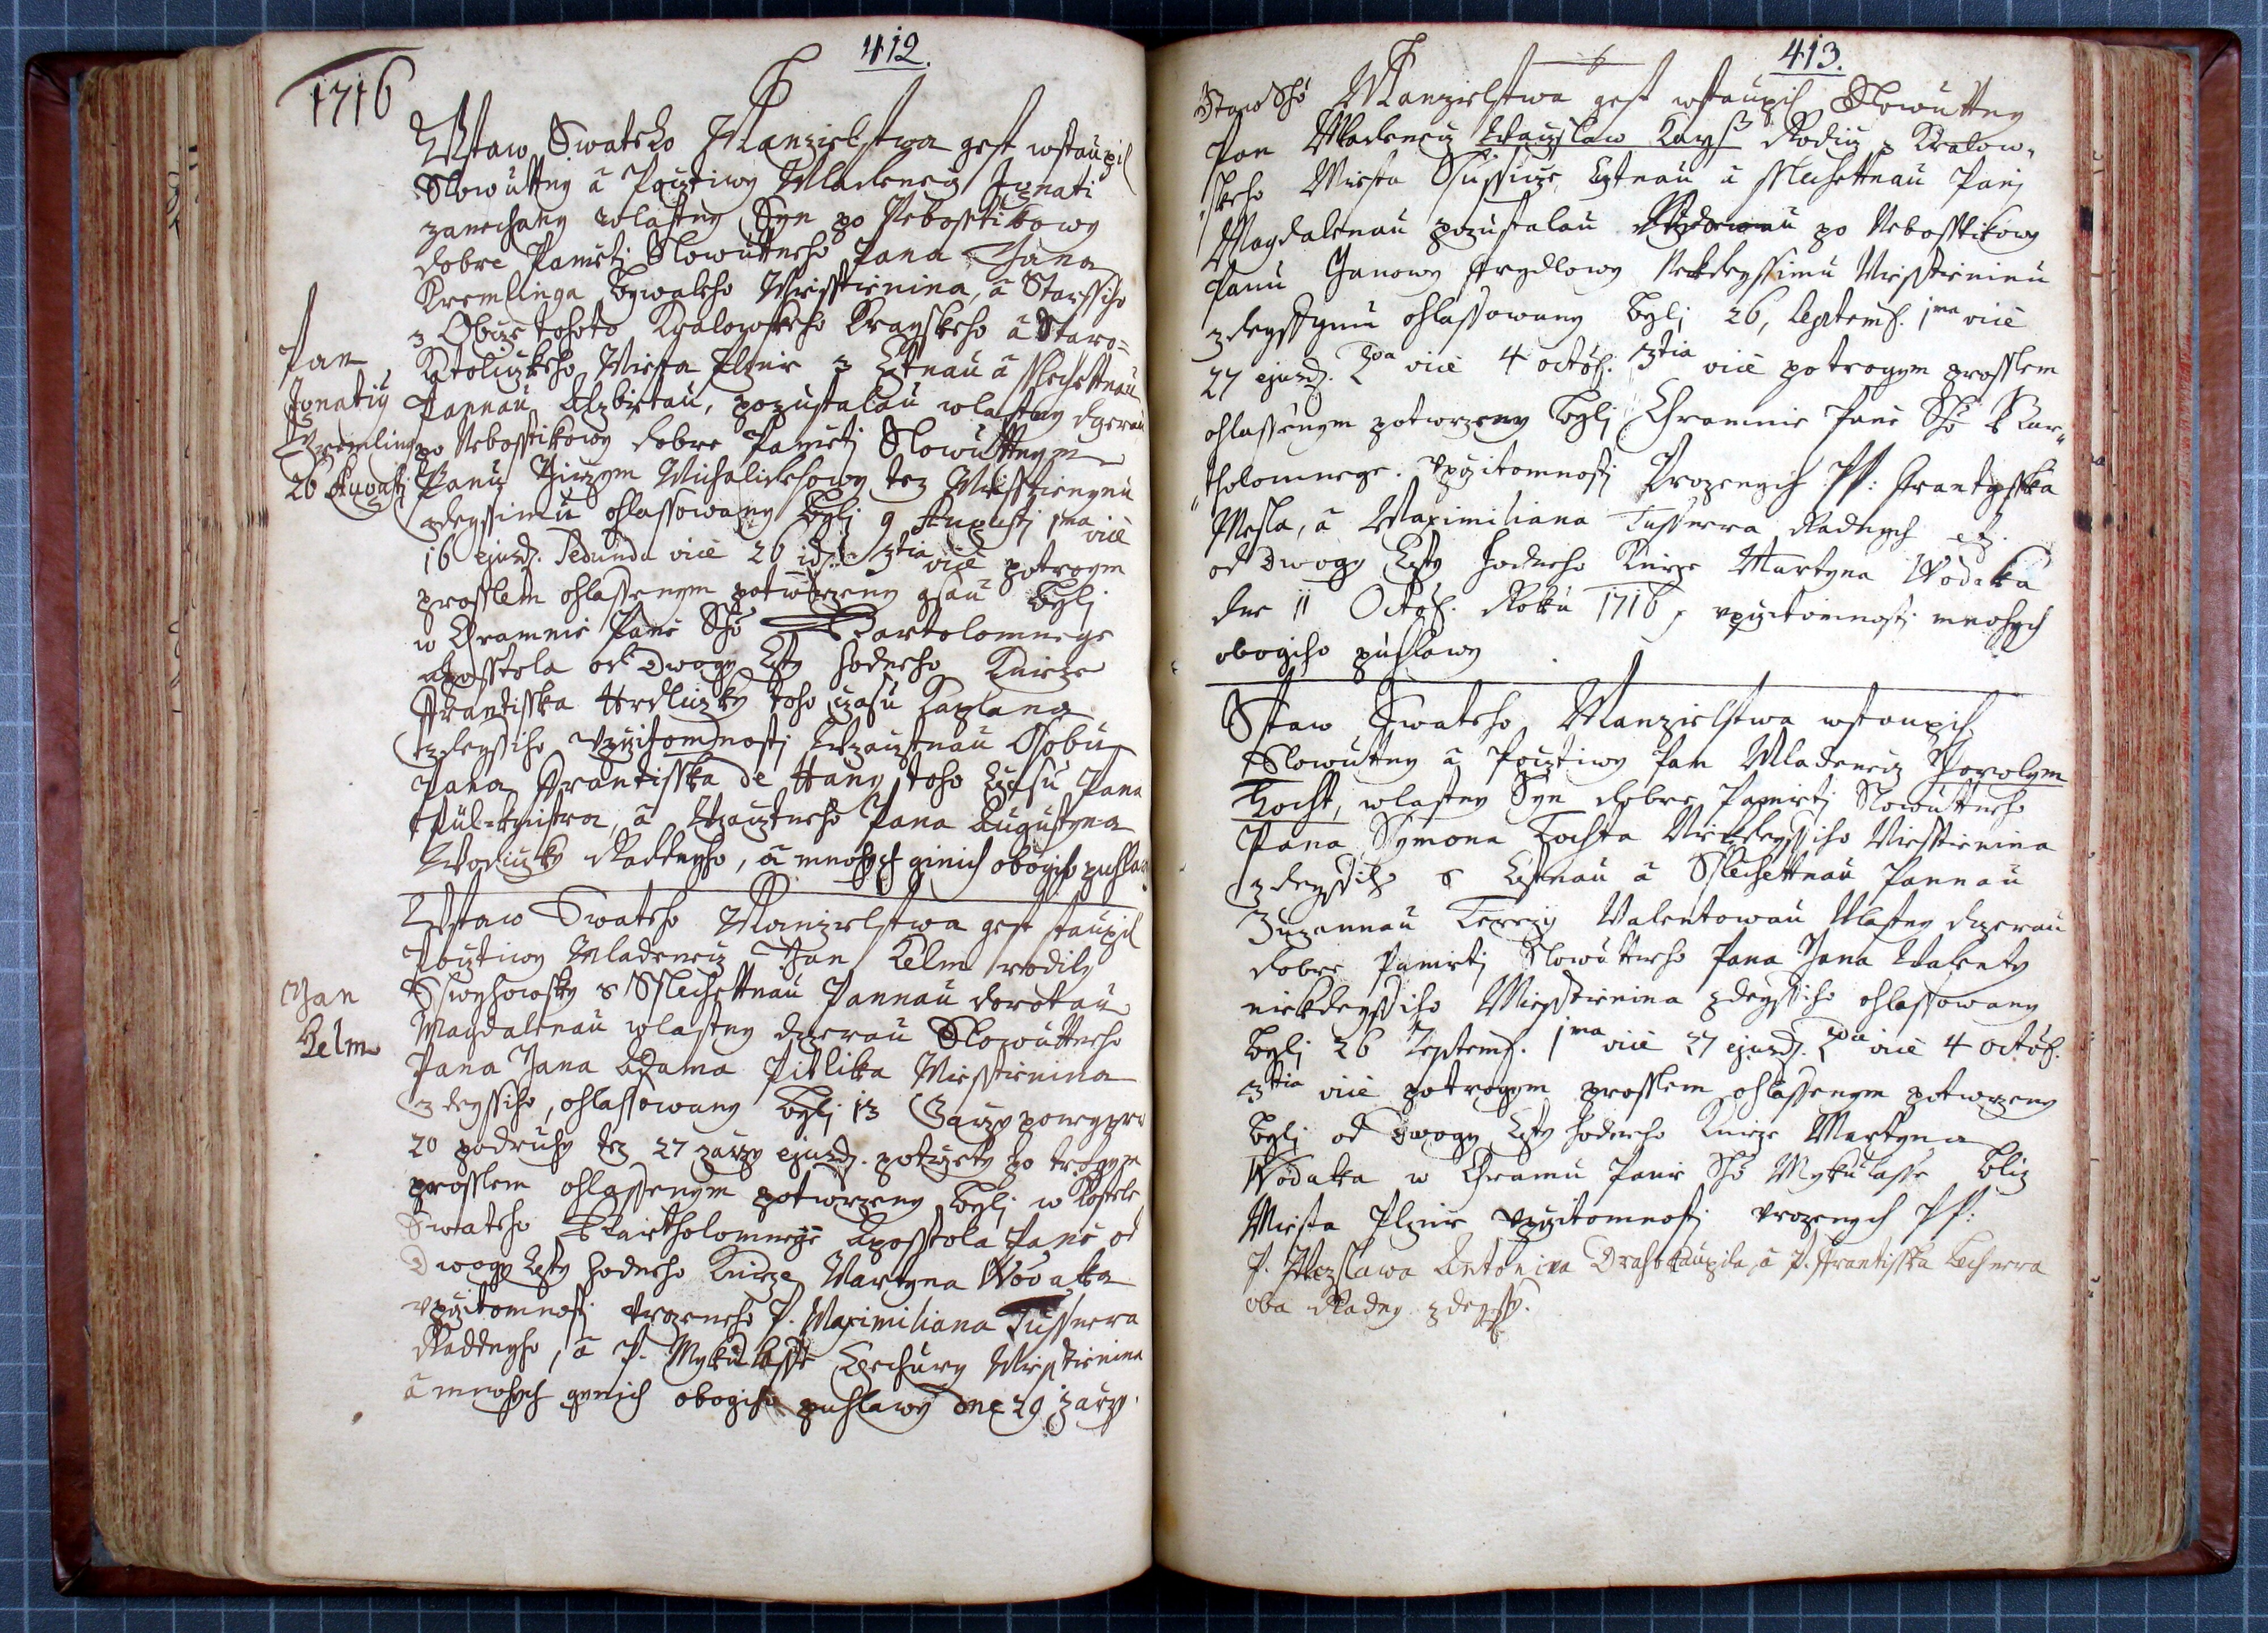 412.
1716
Wstaw Swateho Manzielstwa gest wstaupil
Slowutny a Pocztiwy Mladenecz Ignati
zanechany wlastny Syn po Nebosstikowy
dobre Pameti Slowutneho Pana Jana
Kremlinga bywaleho Miesstienina, a Starssiho
z Obcze tohoto Kralowskeho Krayskeho a Staro=
Pan
Katoliczkeho Miesta Plznie z Cztnau a Slechettnau
Ignatiy
Pannau Alzbietau, pozustalau wlastny dczerau
Kremling
po Nebosstikowy dobre Pameti Slowuttnym
26 Augusti
Panu Girzym Michalickowy tez Miesstieninu
zdeyssimu ohlassowany byli 9 Augusti 1ma vice
16 ejusd. Secunda vice 26 id. 3tia vice potrogym
prosslem ohlassenym potwrzeny gsau byli
w Chramie Panie Sho Bartolomiege
Aposstola od Dwogy Czty hodneho Knieze
Frantisska Hrdliczky toho czasu Kaplana
zdeyssiho vpritomnosti Wzacztnau Osobu
Pana Frantisska de Hany toho Czasu Pana
Pul=Mistra, a Wzacztneho Pana Augustyna
Wodiczky Raddnyho, a mnohych ginich obogiho puhlawy
Wstaw Swateho Manzielstwa gest staupil
Pocztiwy Mladenecz Jan Kelm rodily
Jan
Sswyhowsky s Sslechettnau Pannau Dorotau
Kelm
Magdalenau wlastny dczerau Slowuttneho
Pana Jana Adama Pitlika Miesstienina
zdeyssiho, ohlassowany byli 13 Zarzy poneyprw
20 podruhy tez 27 zarzy ejusd. potrzety po trogym
prosslem ohlassenym potwrzeny byli w Kostele
Swateho Bartholomiege Aposstola Panie od
Dwogy Czty hodneho Knieze Martyna Wodaka
vpritomnosti Vrozeneho P. Maximiliana Tussnera
Raddnyho, a P. Mykulasse Czechury Miesstienina
a mnohych gynich obogiho puhlawy dne 29 zarzy.
413.
Wstaw Sho Manzielstwa gest wstaupil Slowuttny
Pan Mladenecz Waczslaw Kays Rodicz z Kralow=
skeho Miesta Sussicze, Cztnau a Slechettnau Pani
Magdalenau pozustalau Wdowau po Nebosstikowy
Panu Janowy Frydlowy Nekdeyssimu Miesstieninu
zdeyssymu ohlassowany byli 26, Septemb. 1ma vice
27 ejusd. 2da vice 4 octob. 3tia vice potrogym prosslem
ohlassenym potwrzeny byli Chramie Panie Sho Bar=
tholomiege. vpritomnosti Vrozenych PP: Frantysska
Wesla, a Maximiliana Tussnera Radnych etz.
od Dwogy Czty hodneho Knieze Martyna Wodaka
dne 11 Octob. Roku 1716, vpritomnosti mnohych
obogiho puhlawy
Wstaw Swateho Manzielstwa wstaupil
Slowuttny a Pocztiwy Pan Mladenecz Jerolym
Kocht, wlastny Syn dobre Pamieti Slowuttneho
Pana Symona Kochta Niekdeyssiho Miesstienina
zdeyssiho s Cztnau a Sslechettnau Pannau
Zuzannau Terezij Valentowau Wlastny dczerau
dobre Pamieti Slowuttneho Pana Jana Walenty
niekdeyssiho Miesstienina zdeyssiho ohlassowany
byli 26 Septemb. 1ma vice 27 ejusd. 2da vice 4 octob.
3tia vice potrogym prosslem ohlassenym potwrzeny
byli od Dwogy Czty hodneho Knieze Martyna
Wodaka w Chramu Panie Sho Mykulasse bliz
Miesta Plznie vpritomnosti Vrozenych PP:
P. Waczslawa Antonina Drahokaupila, a P. Frantisska Lechnera
oba Radny zdeyssy.